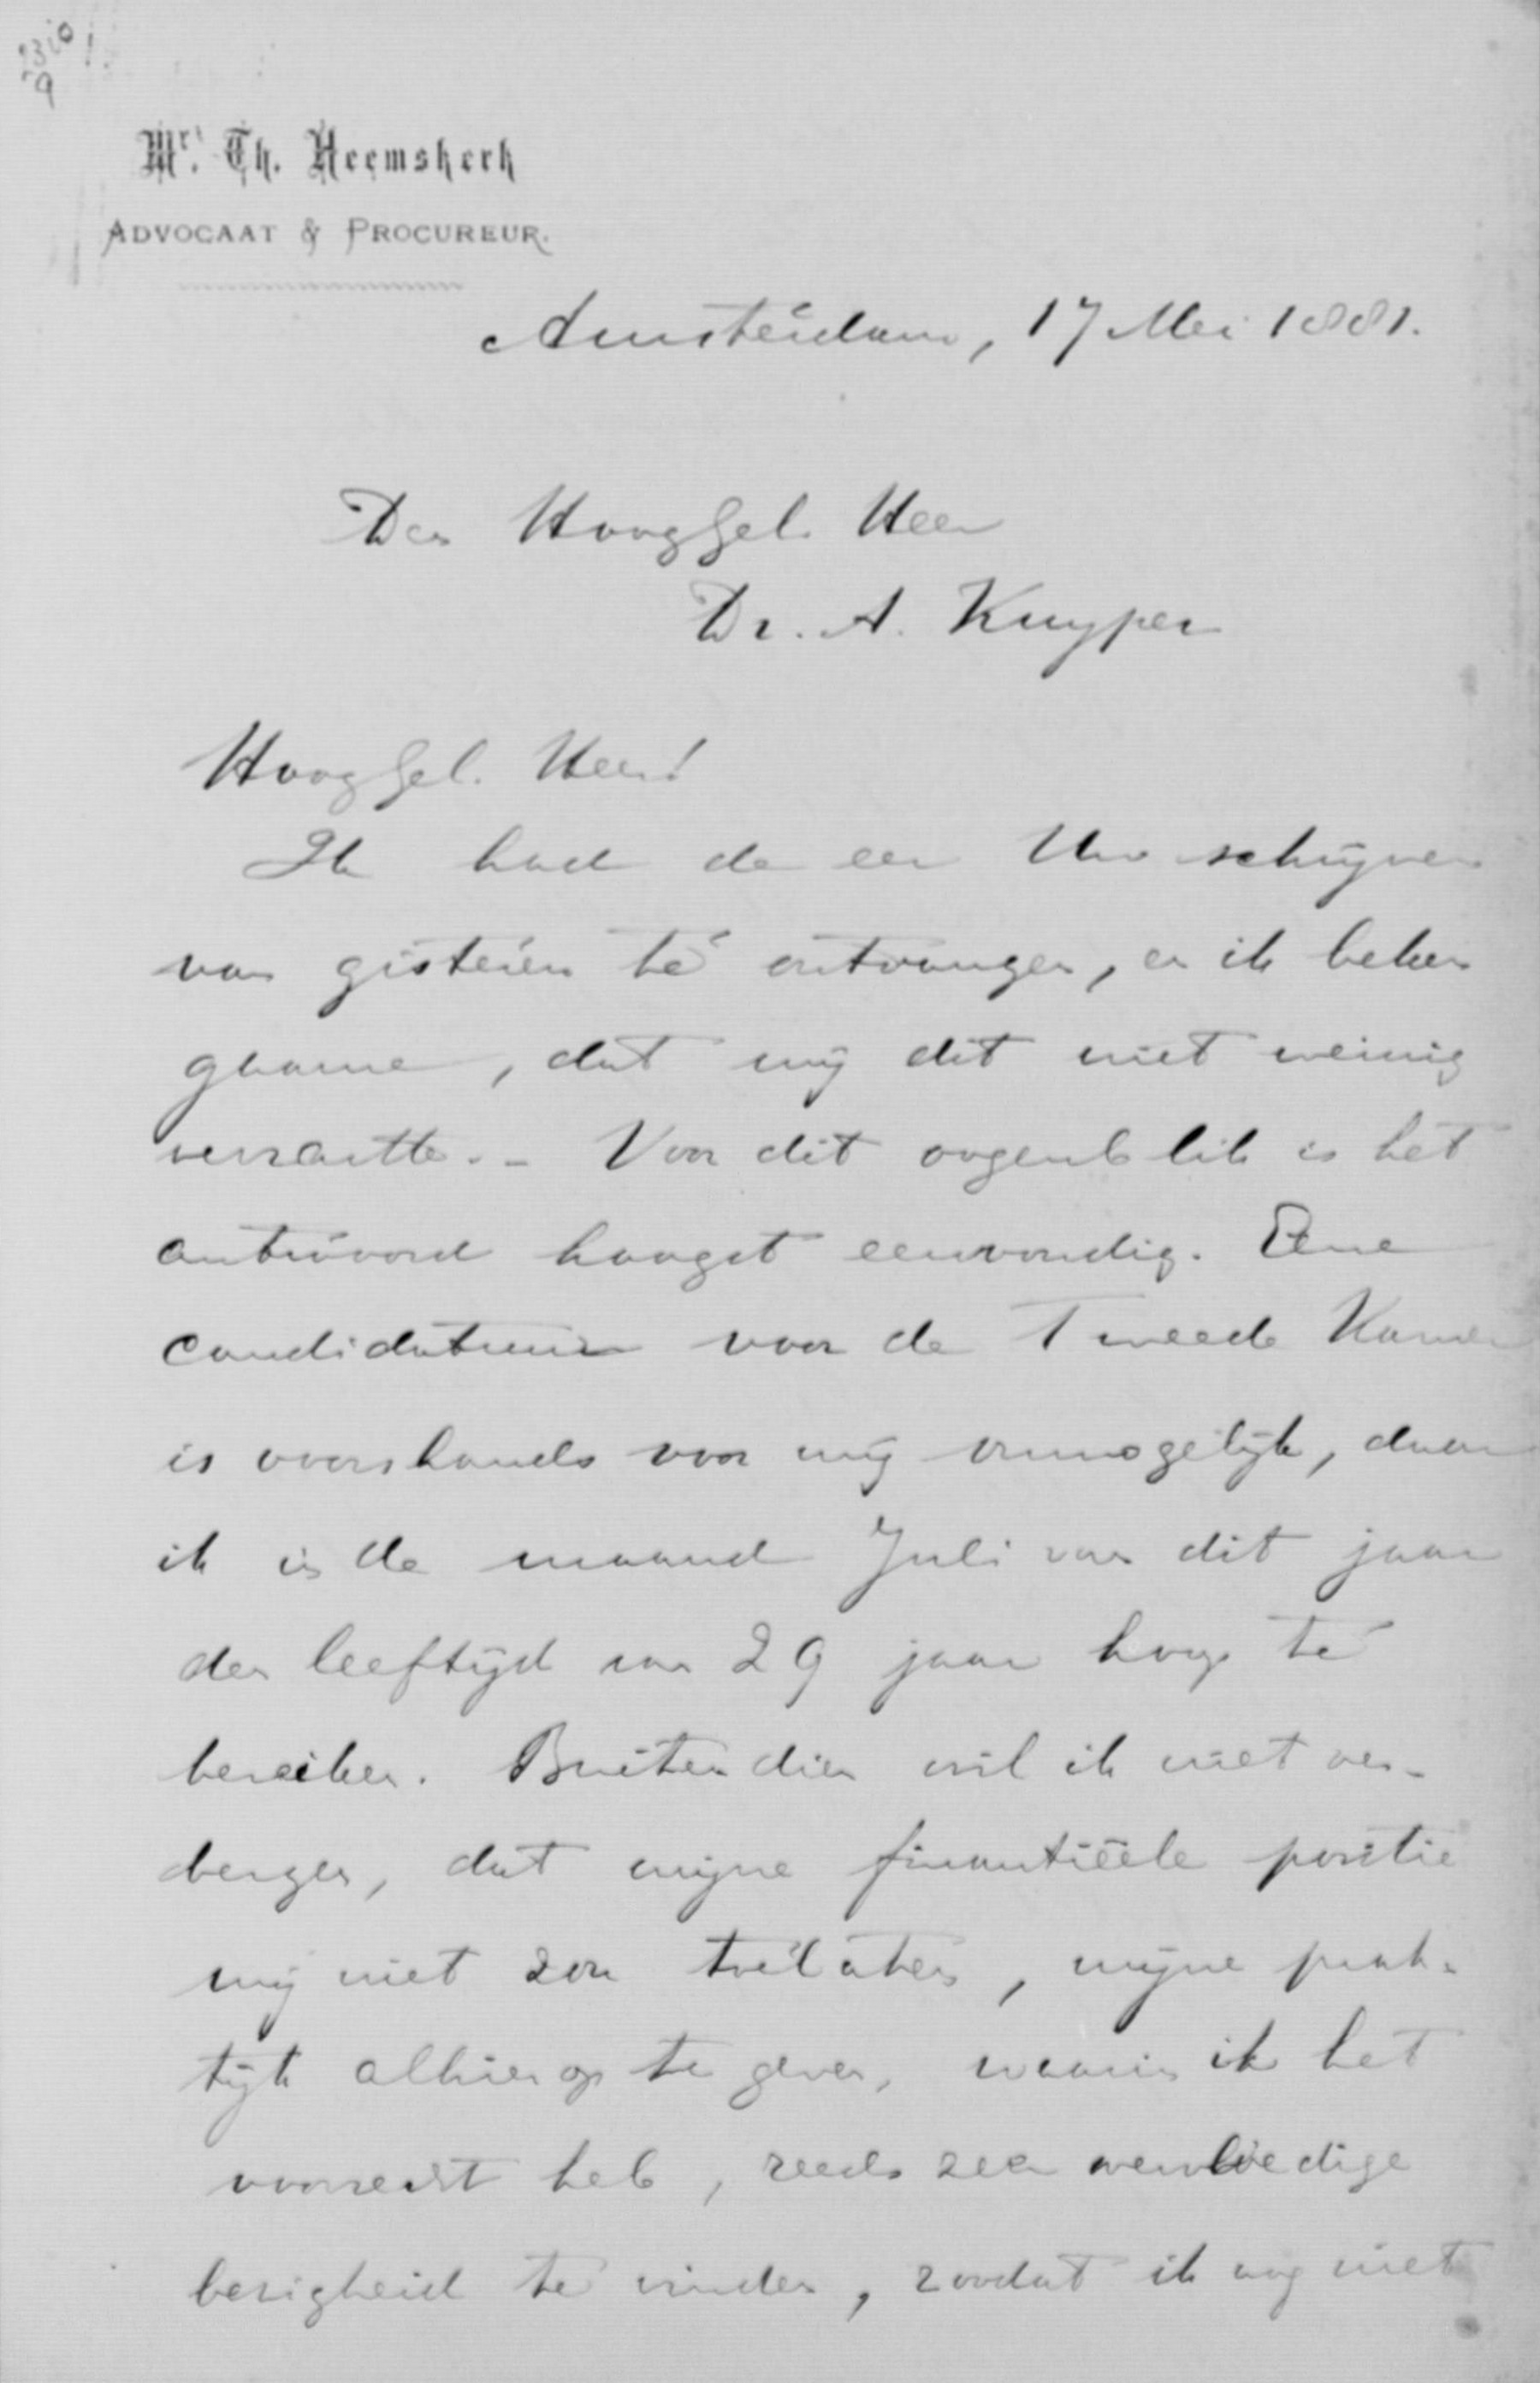 Mr. Th. Heemskerk
ADVOCAAT & PROCUREUR.
Amsterdam, 17 Mei 1881.
Den Hooggel. Heer
Dr. A. Kuyper
Hooggel. Heer!
Ik had de eer Uw schrijven
van gisteren te ontvangen, en ik beken
gaarne, dat mij dit niet weinig
verrastte. - Voor dit oogenblik is het
antwoord hoogst eenvoudig. Eene
candidatuur voor de Tweede Kamer
is voorshands voor mij onmogelijk, daar
ik in de maand Juli van dit jaar
den leeftijd van 29 jaar hoop te
bereiken. Buitendien wil ik niet ver-
bergen, dat mijne finantiëele positie
mij niet zou toelaten, mijne prak-
tijk alhier op te geven, waarin ik het
voorrecht heb, reeds zeer overvloedige
bezigheid te vinden, zoodat ik nog niet